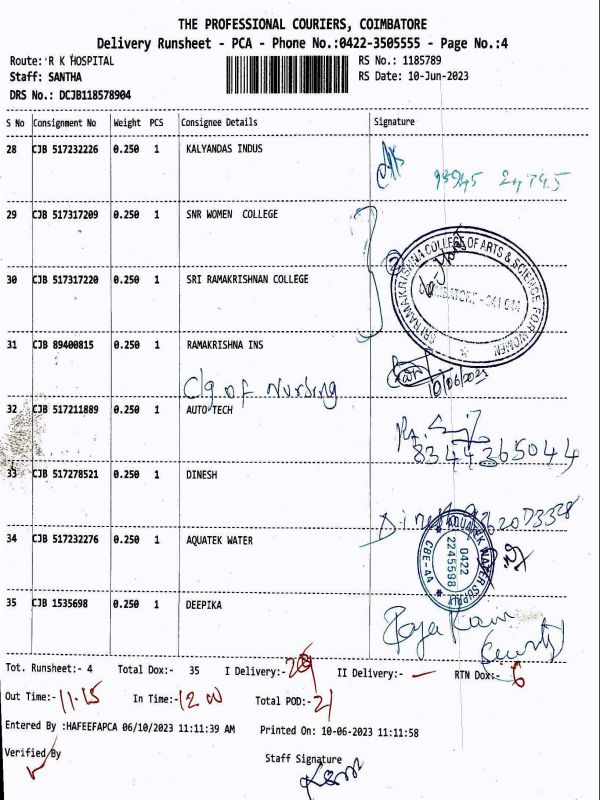 THE PROFESSIONAL COURIERS, COIMBATORE
Delivery Runsheet - PCA - Phone No.:0422-3505555 - Page No.:4
Route: R K HOSPITAL RS No.: 1185789
Staff: SANTHA RS Date: 10-Jun-2023
DRS No.: DCJB118578904
S No Consignment No Weight PCS Consignee Details Signature
28 CJB 517232226 0.250 1 KALYANDAS INDUS
29 CJB 517317209 0.250 1 SNR WOMEN COLLEGE
SRI RAMAKRISHNA COLLEGE OF ARTS & SCIENCE FOR WOMEN
COIMBATORE - 641 044
30 CJB 517317220 0.250 1 SRI RAMAKRISHNAN COLLEGE
31 CJB 89400815 0.250 1 RAMAKRISHNA INS
10/06/2023
Clg of Nursing
32 CJB 517211889 0.250 1 AUTO TECH
8344365044
33 CJB 517278521 0.250 1 DINESH
Dinesh
34 CJB 517232276 0.250 1 AQUATEK WATER
AQUATEK WATER SUPPLY
0422
2245598
CBE-44
35 CJB 1535698 0.250 1 DEEPIKA
Tot. Runsheet:- 4 Total Dox:- 35 I Delivery:- II Delivery:- - RTN Dox:- 6
Out Time:- 11.15 In Time:- 12.00 Total POD:- 21
Entered By :HAFEEFAPCA 06/10/2023 11:11:39 AM Printed On: 10-06-2023 11:11:58
Verified By Staff Signature